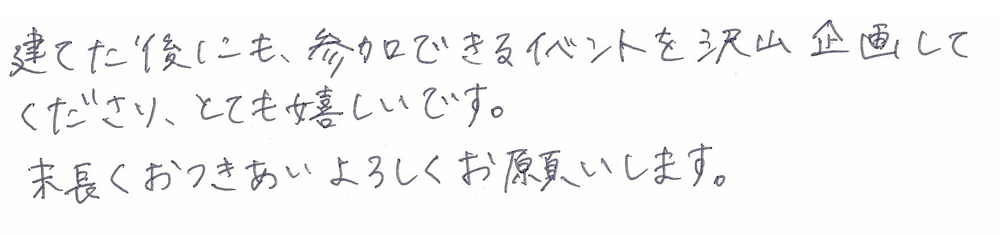 建てた後にも、参加できるイベントを沢山企画して
くださり、とても嬉しいです。
末長くおつきあいよろしくお願いします。